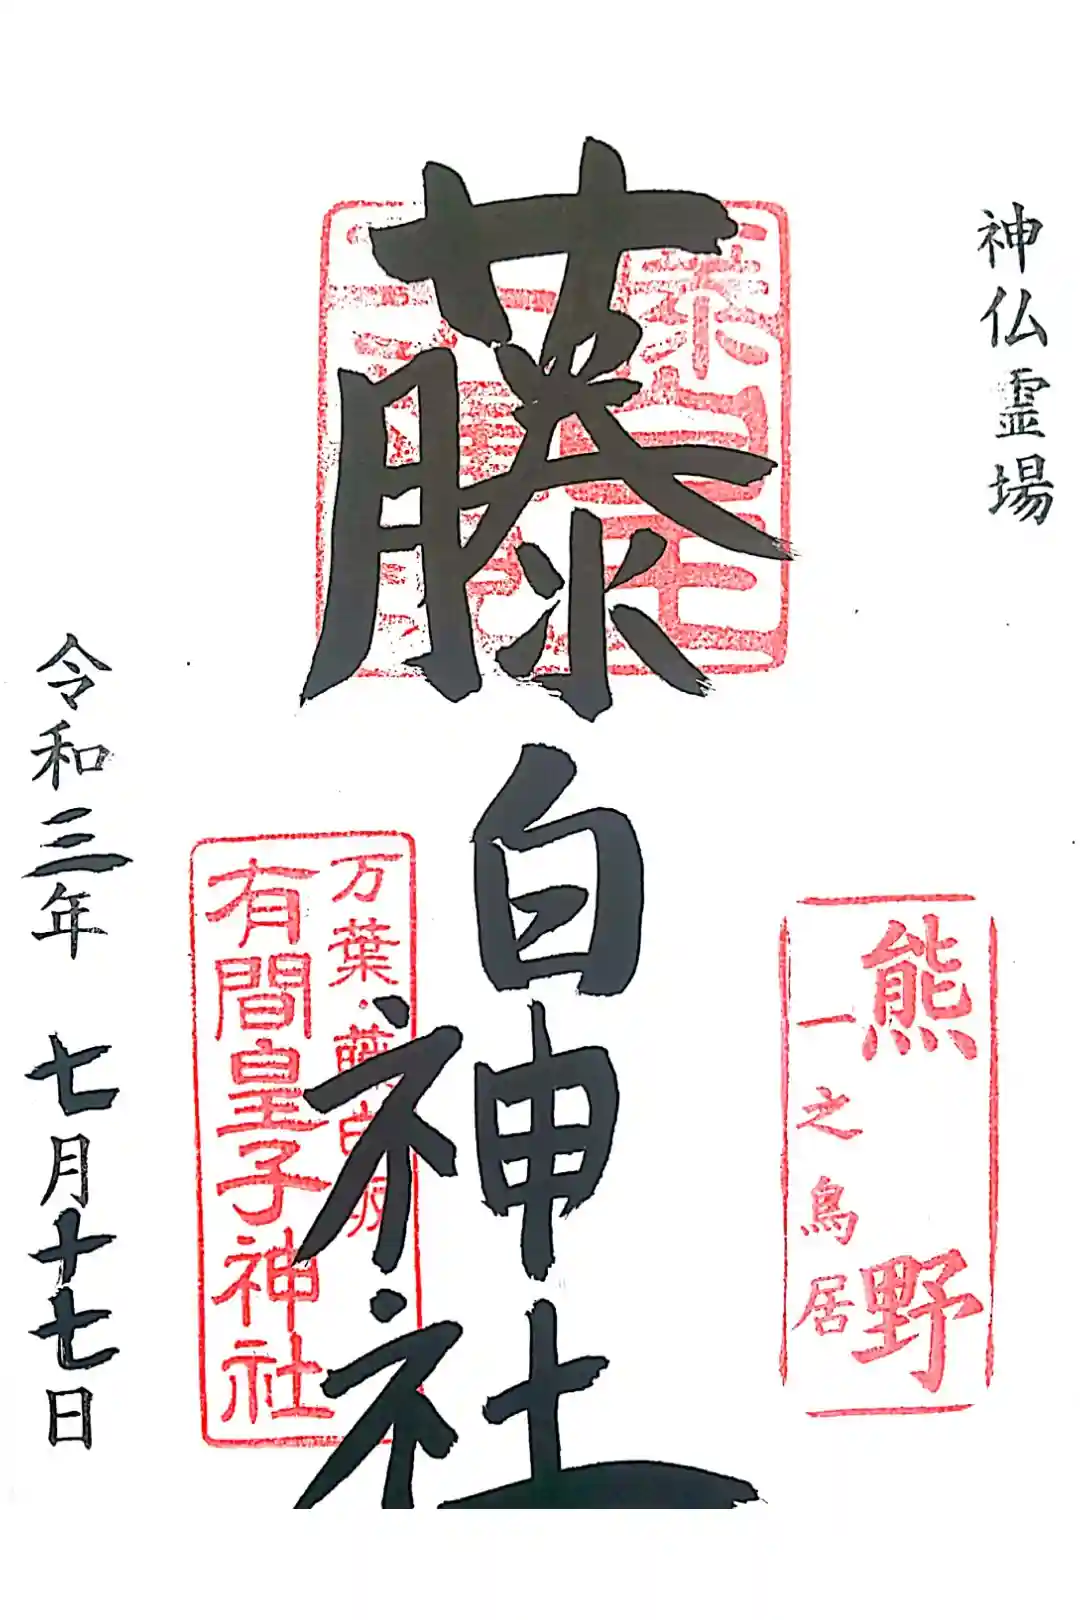 神仏霊場
熊野
一之鳥居
藤白神社
万葉・藤白坂
有間皇子神社
令和三年 七月十七日